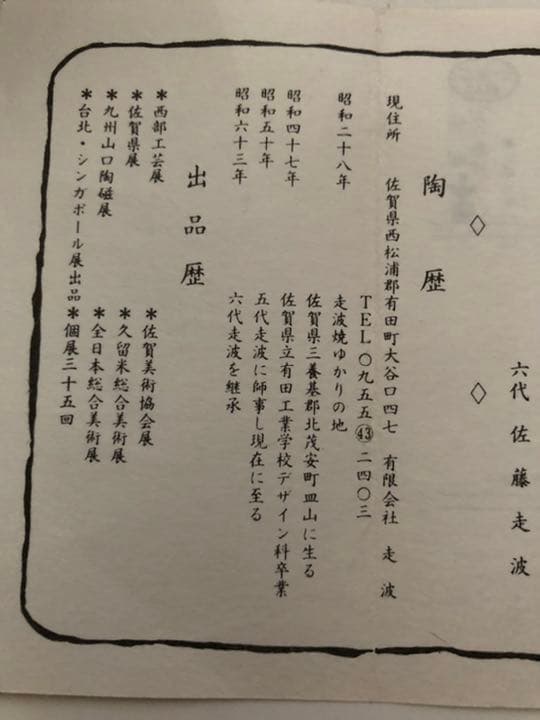 六代 佐藤走波
◇ 陶歴 ◇
現住所 佐賀県西松浦郡有田町大谷口四七 有限会社 走波
TEL〇九五五㊸二四〇三
昭和二十八年 走波焼ゆかりの地
佐賀県三養基郡北茂安町皿山に生る
昭和四十七年 佐賀県立有田工業学校デザイン科卒業
昭和五十年 五代走波に師事し現在に至る
昭和六十三年 六代走波を継承
出品歴
＊西部工芸展 ＊佐賀美術協会展
＊佐賀県展 ＊久留米総合美術展
＊九州山口陶磁展 ＊全日本総合美術展
＊台北・シンガポール展出品 ＊個展三十五回